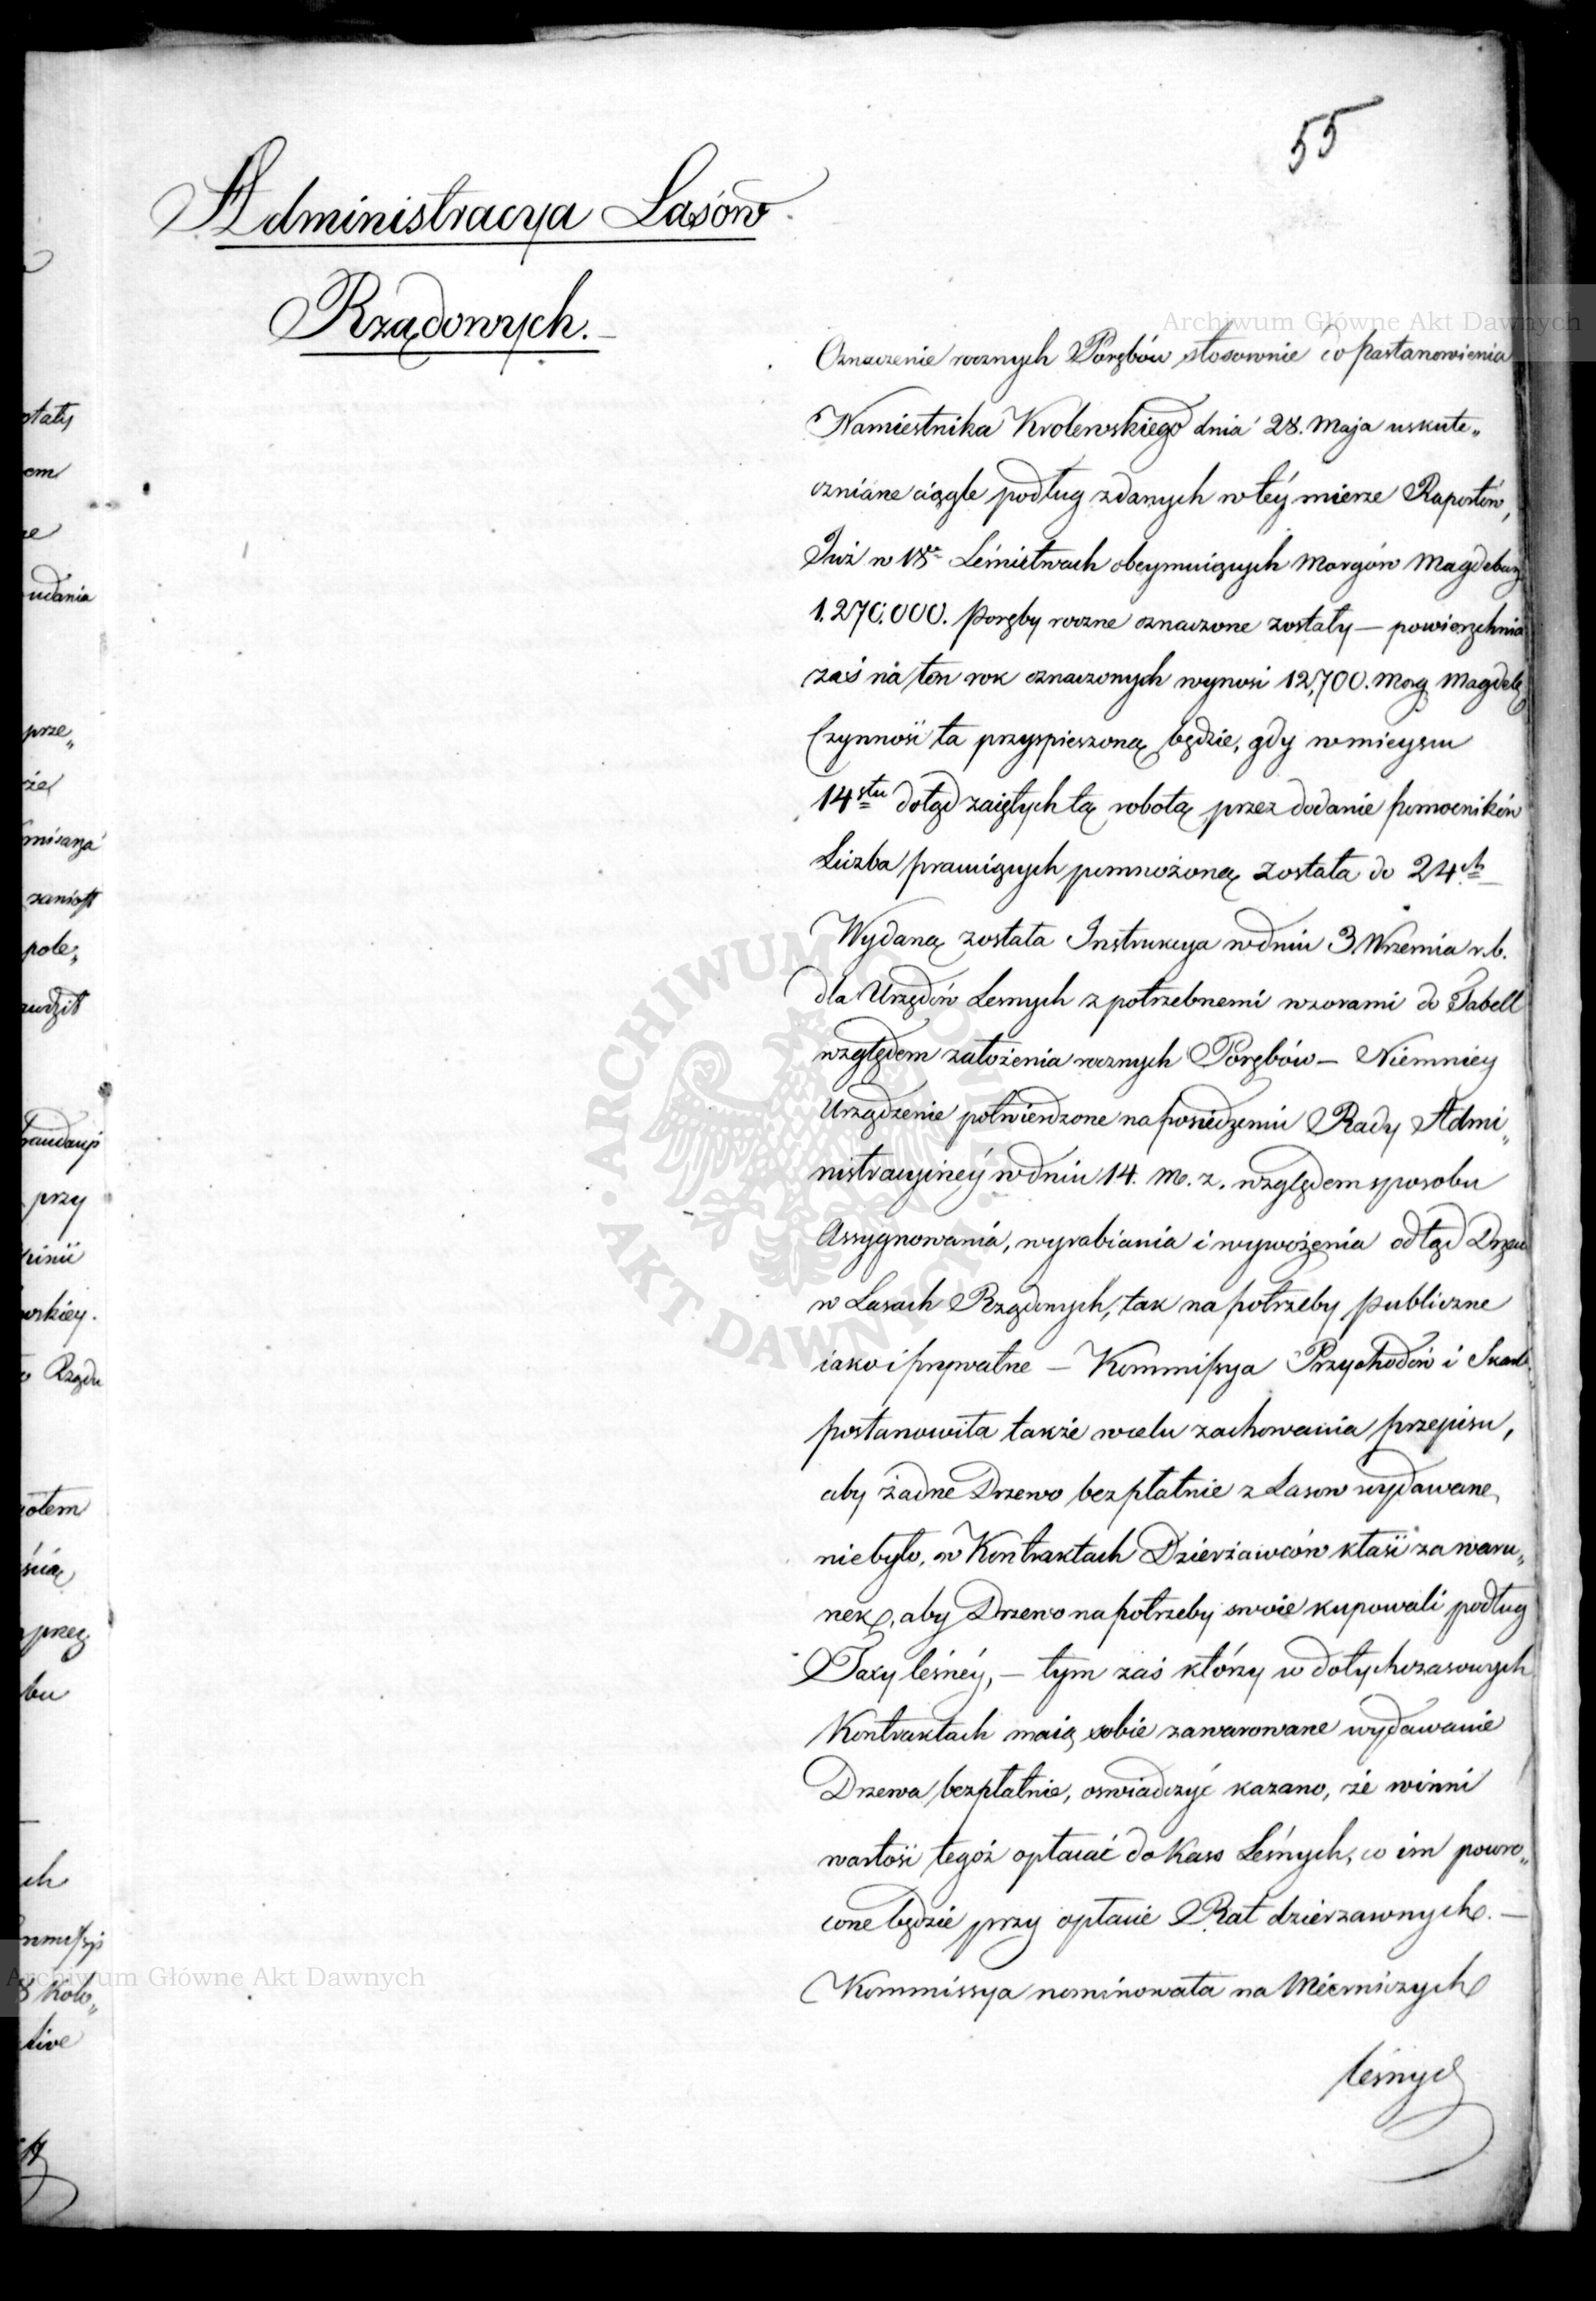 55
Administracya Lasów
Rządowych.
Oznaczenie rocznych Porębów stosownie do postanowienia
Namiestnika Krolewskiego dnia 28. Maja uskute„
czniane ciągle podług zdanych w téy mierze Raportów,
Już w 18 Leśnictwach obeymuiących Morgów Magdebur
1.270.000. Poręby roczne oznaczone zostały — powierzchnia
zaś na ten rok oznaczonych wynosi 12,700. Morg Magdeb
Czynność ta przyspieszoną będzie, gdy w mieyscu
14stu dotąd zaiętych tą robotą przez dodanie pomocników
Liczba pracuiących pomnożoną została do 24ch
Wydaną została Instrukcya w dniu 3 Wrzesnia r.b.
dla Urzędów Lesnych z potrzebnemi wzorami do Tabell
względem założenia rocznych Porębów — Niemniey
Urządzenie potwierdzone na posiedzeniu Rady Admi„
nistracyinéy w dniu 14. m. z. względem sposobu
Assygnowania, wyrabiania i wywożenia odtąd Drzewa
w Lasach Rządowych, tak na potrzeby publiczne
iako i prywatne — Kommissya Przychodów i Skarb.
postanowiła także w celu zachowania przepisu,
aby żadne Drzewo bezpłatnie z Lasow wydawane
nie było, w Kontraktach Dzierżawców kłaść za waru„
nek, aby Drzewo na potrzeby swoie kupowali podług
Taxy leśnéy, — tym zaś którzy w dotychczasowych
Kontraktach maią sobie zawarowane wydawanie
Drzewa bezpłatnie, oswiadczyć kazano, że winni
wartość tegoż opłacać do Kass Leśnych, co im powro„
cone będzie przy opłacie Rat dzierzawnych. —
Kommissya nominowała na Mierniczych
leśnych
stały
em
ze
udania
prze„
że
zaniósł
pole„
przy
Rządu
bu
ch
Kolo„
tive
Archiwum Główne Akt Dawnych
Archiwum Główne Akt Dawnych
ARCHIWUM GŁÓWNE · AKT DAWNYCH ·